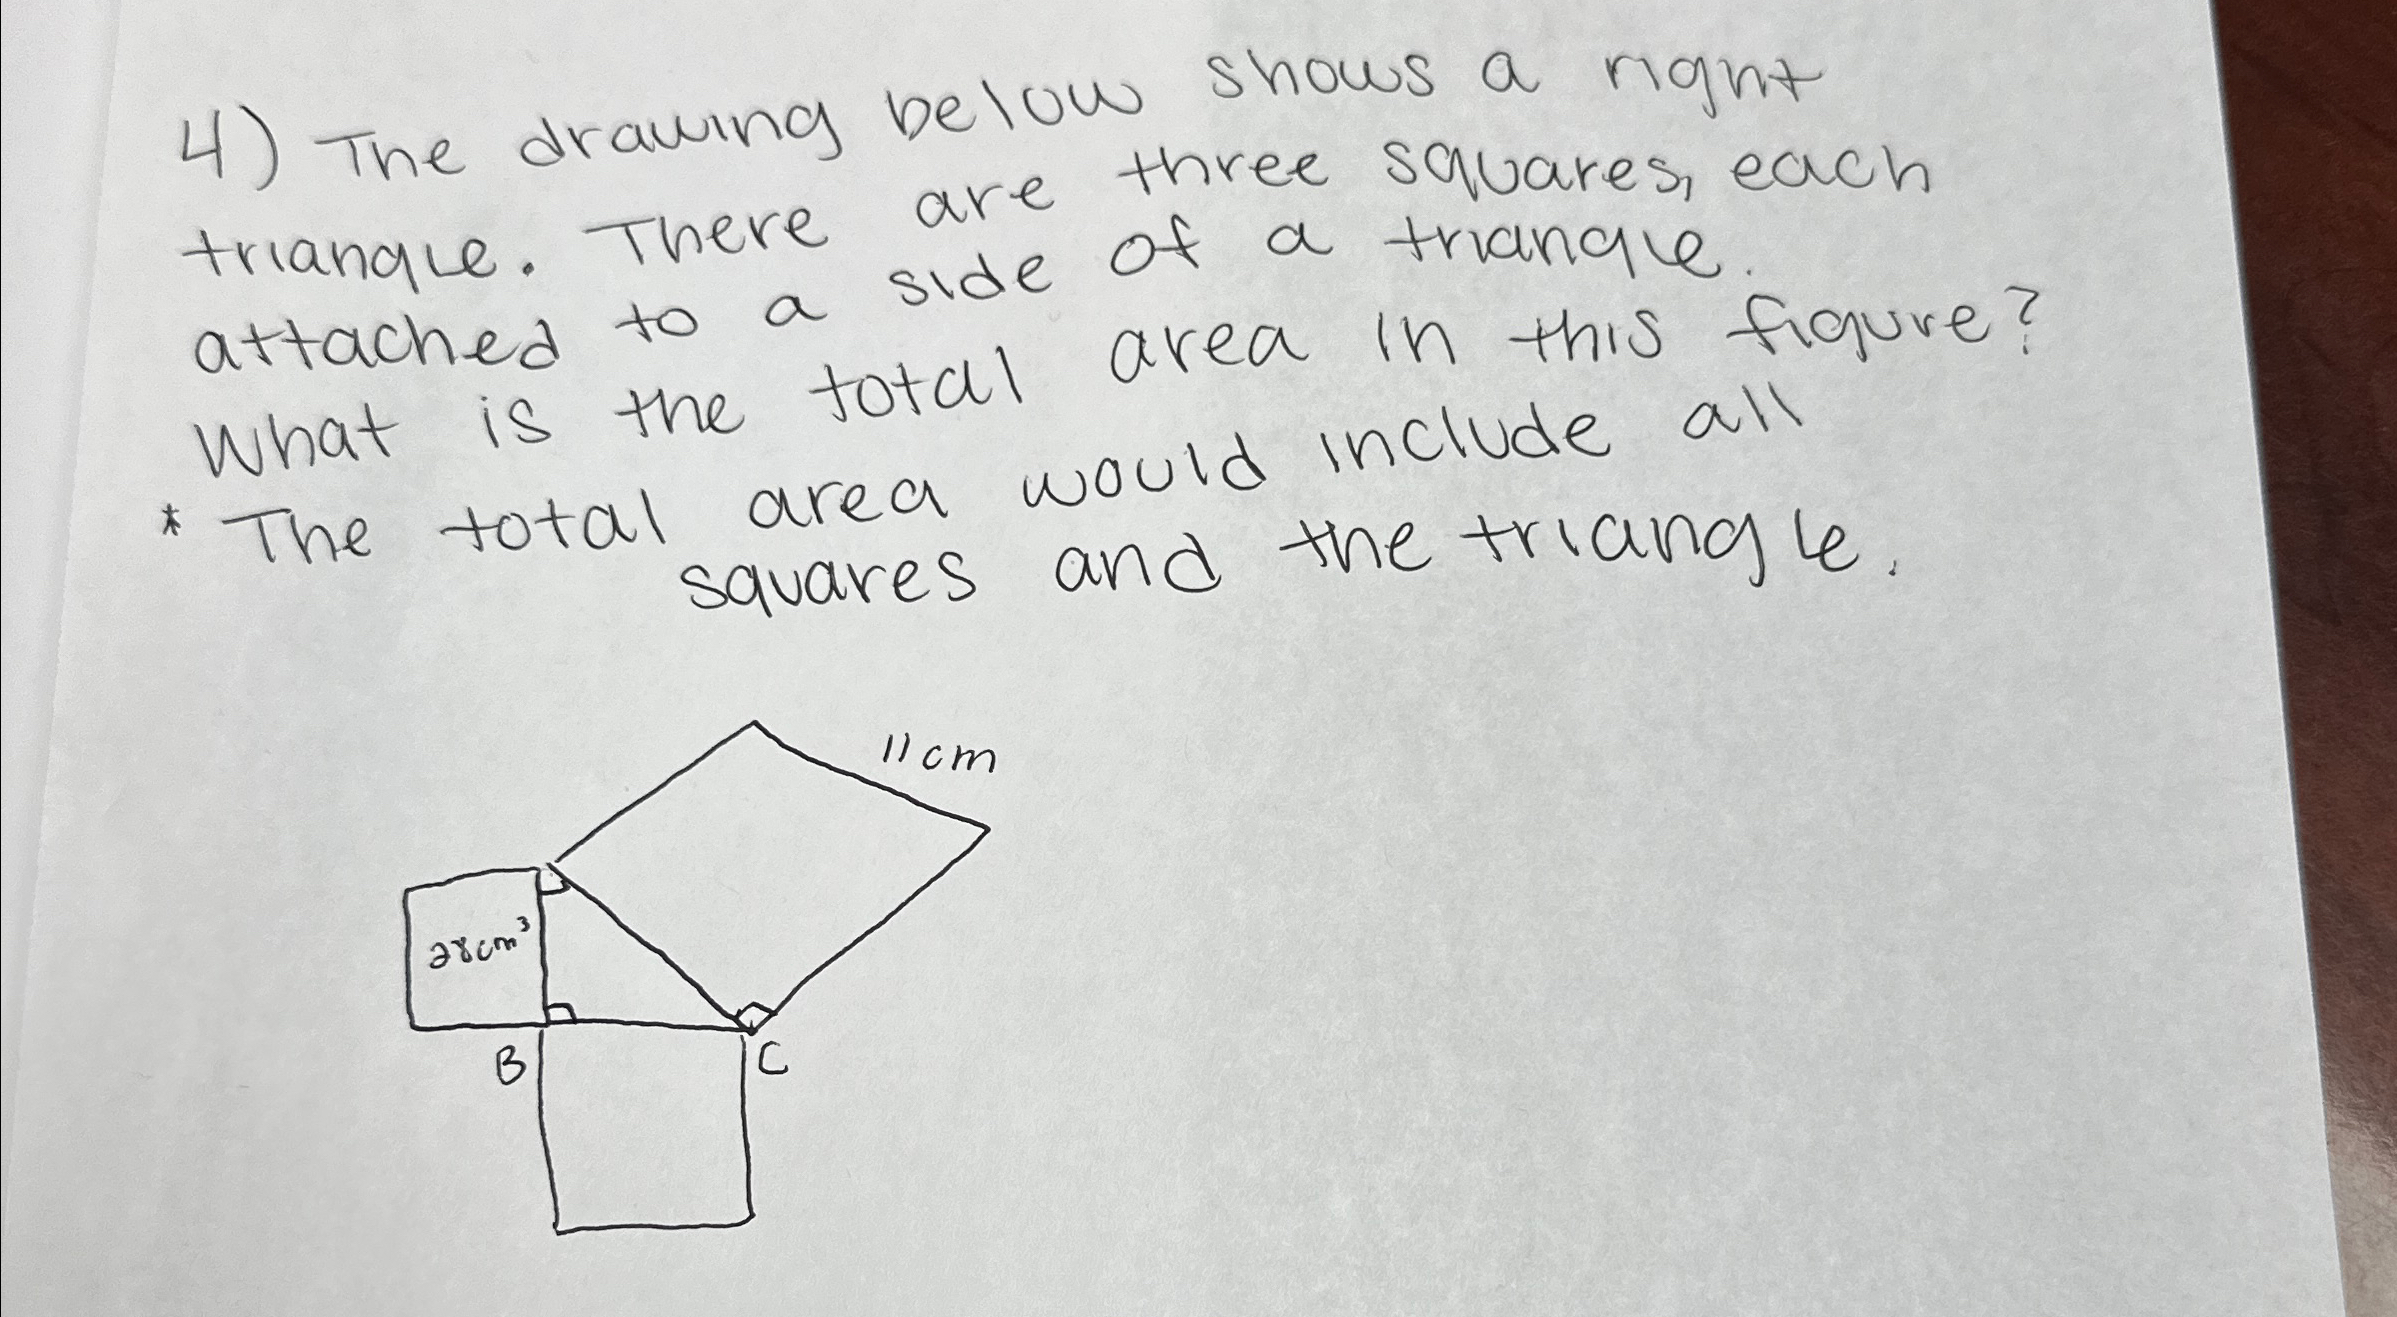 4) The drawing below shows a right
triangle. There are three squares, each
attached to a side of a triangle.
What is the total area in this figure?
* The total area would include all
squares and the triangle.
11cm
28cm³
B
C